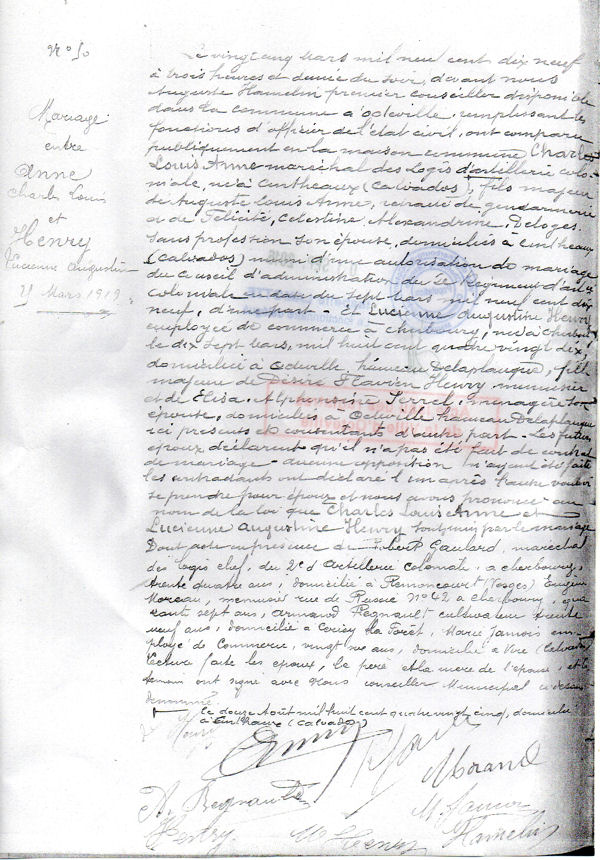 N° 10
Mariage
entre
Anne
Charles Louis
et
Henry
Lucienne Augustine
Mars 1919
Le vingt cinq Mars mil neuf cent dix neuf
à trois heures et demie du soir, devant nous
Auguste Hamelin premier conseiller disponible
dans la commune d'Octeville, remplissant les
fonctions d'officier de l'état civil, ont comparu
publiquement en la maison commune Charles
Louis Anne maréchal des Logis d'artillerie colo-
niale, né à (Calvados), fils majeur
de Auguste Louis Anne, retraité de gendarmerie
et de Félicité, Célestine, Alexandrine, Deloges
sans profession son épouse, domiciliés à
(Calvados) muni d'une autorisation de mariage
du Conseil d'administration du 2e Régiment d'art
coloniale en date du sept Mars mil neuf cent dix
neuf, d'une part - Et Lucienne Augustine Henry
employée de commerce à Cherbourg, née à Cherbourg
le dix sept Mars, mil huit cent quatre vingt dix,
domiciliée à Octeville, hameau Delaplanque, fille
majeure de Désiré Flavien Henry, menuisier
et de Elisa, Alphonsine ménagère son
épouse, domiciliés à Octeville hameau Delaplanque
ici présents & consentants d'autre part - Les futurs
époux déclarent qu'il n'a pas été fait de contrat
de mariage - aucune opposition n'ayant été faite
les contractants ont déclaré l'un après l'autre vouloir
se prendre pour époux et nous avons prononcé au
nom de la loi que Charles Louis Anne et
Lucienne Augustine Henry sont unis par le mariage
Dont acte en présence de Robert Gaulard, maréchal
des logis chef, du 2e d'artillerie Coloniale, à Cherbourg,
trente quatre ans, domicilié à (Vosges) Eugène
Moreau, menuisier rue de Russie N° 42 à Cherbourg, qua
rante sept ans, Armand Regnault cultivateur trente
neuf ans, domicilié à Cerisy la Forêt, Marie em-
ployé de Commerce, vingt ans, domicilié à Vire (Calvados)
Lecture faite les époux, le père et la mère de l'épouse, et les
témoins ont signé avec Nous conseiller Municipal ci dessus
dénommé
le douze août mil huit cent quatre vingt cinq, domicilié
à (Calvados)
L Henry
Anne
A. Regnault
Henry
M Henry
Hamelin